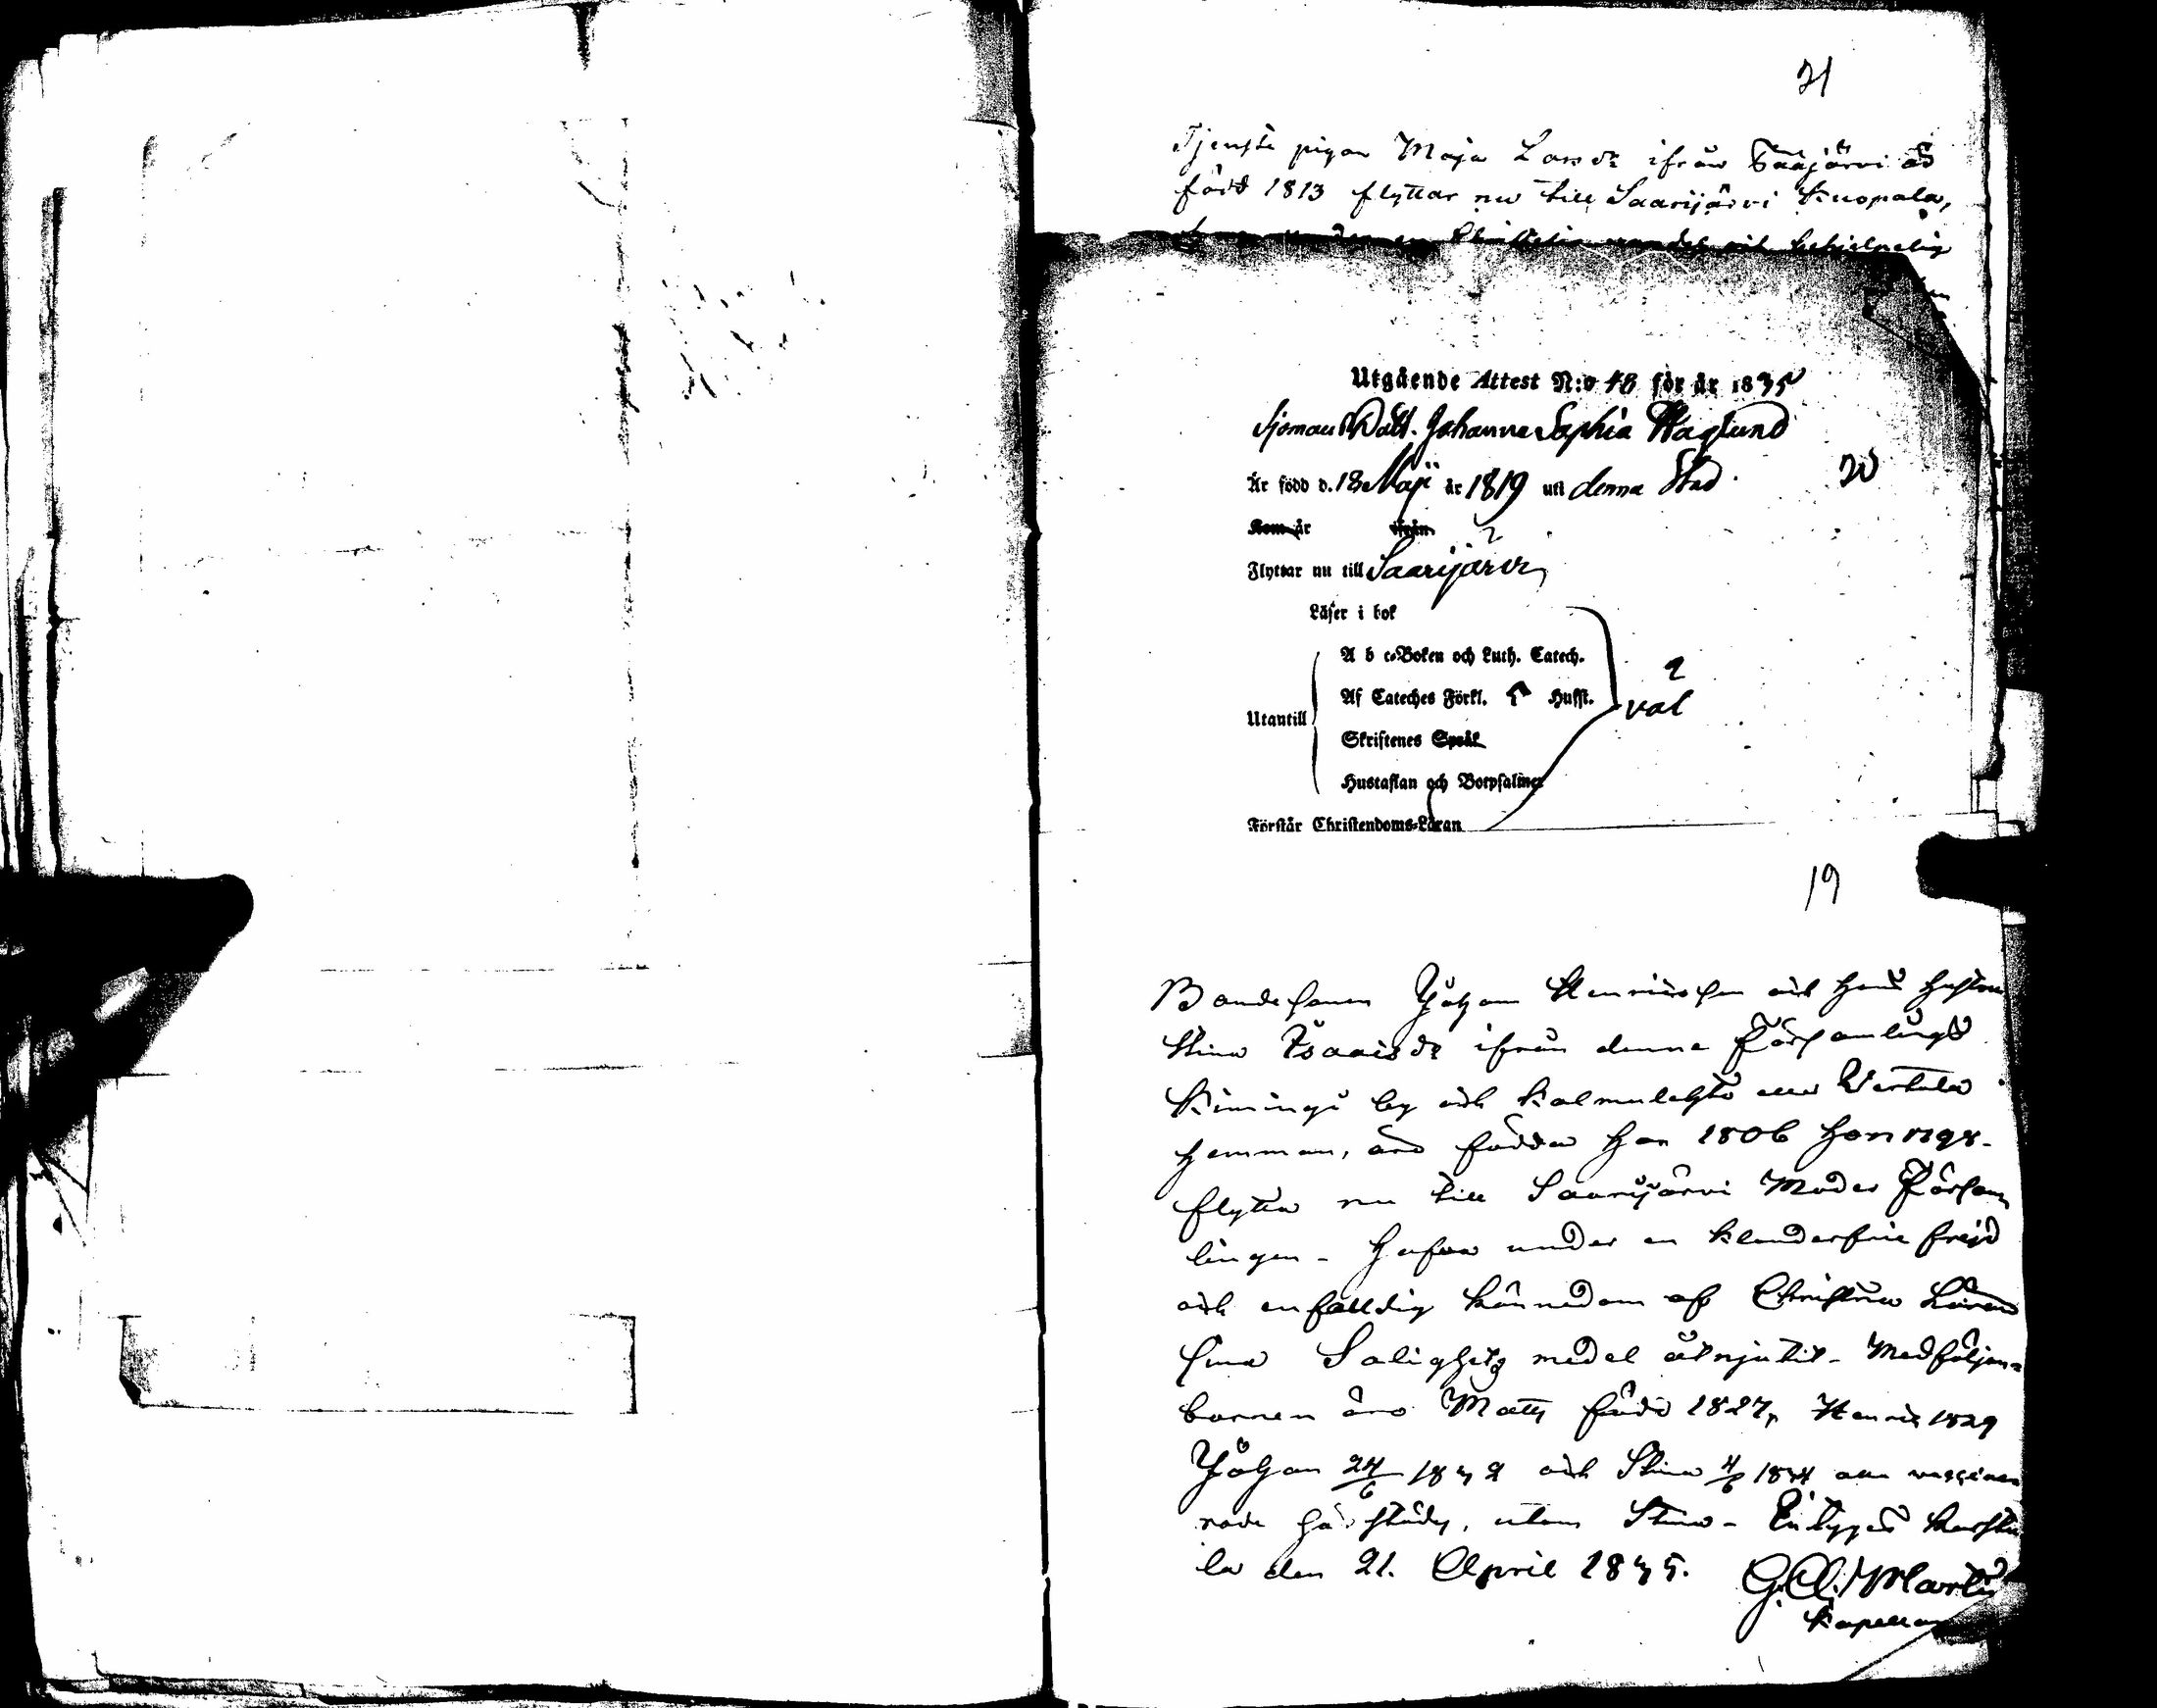 21
Tjenste pigan Maja Larsdr ifrån Saajärvi är
född 1813 flyttar nu till Saarijärvi Kuopala,
wandel och behjelpelig
Utgående Attest N:o 48 för år 1835
Sjöman Dott. Johanna Sophia Haglund
Är född d. 18 Maji år 1819 uti denna Stad.
20
Kom år ifrån
Flyttar nu till Saarijärvi
Läser i bok
A b c-Boken och Luth. Catech.
Af Cateches Förkl. Husst.
val
Utantill
Skriftenes Språk
Hustaflan och Botpsalmer
Förstår Christendoms-Läran
19
Bondesonen Johan Henricsson och Hans Hustru
Stina Isaacsdr ifrån denna Församlings
Kimingi by och Kalmulahto eller Wertala
Hemman, äro födda Han 1806 Hon 1798.
flytta nu till Saarijärvi Moder Församl
lingen - Hafva under en klanderfrie frejd
och enfalldig kännedom af Christna Läran
sina Salighets medel åtnjutit - Medföljan-
barnen äro Matts född 1827, Henric 1829
Johan 24/6 1832 och Stina 4/6 1834 alla vaccine
rade härstädes, utom Stina - Intygas Karstu
la den 21. April 1835. G. A. Martin
Kapellan